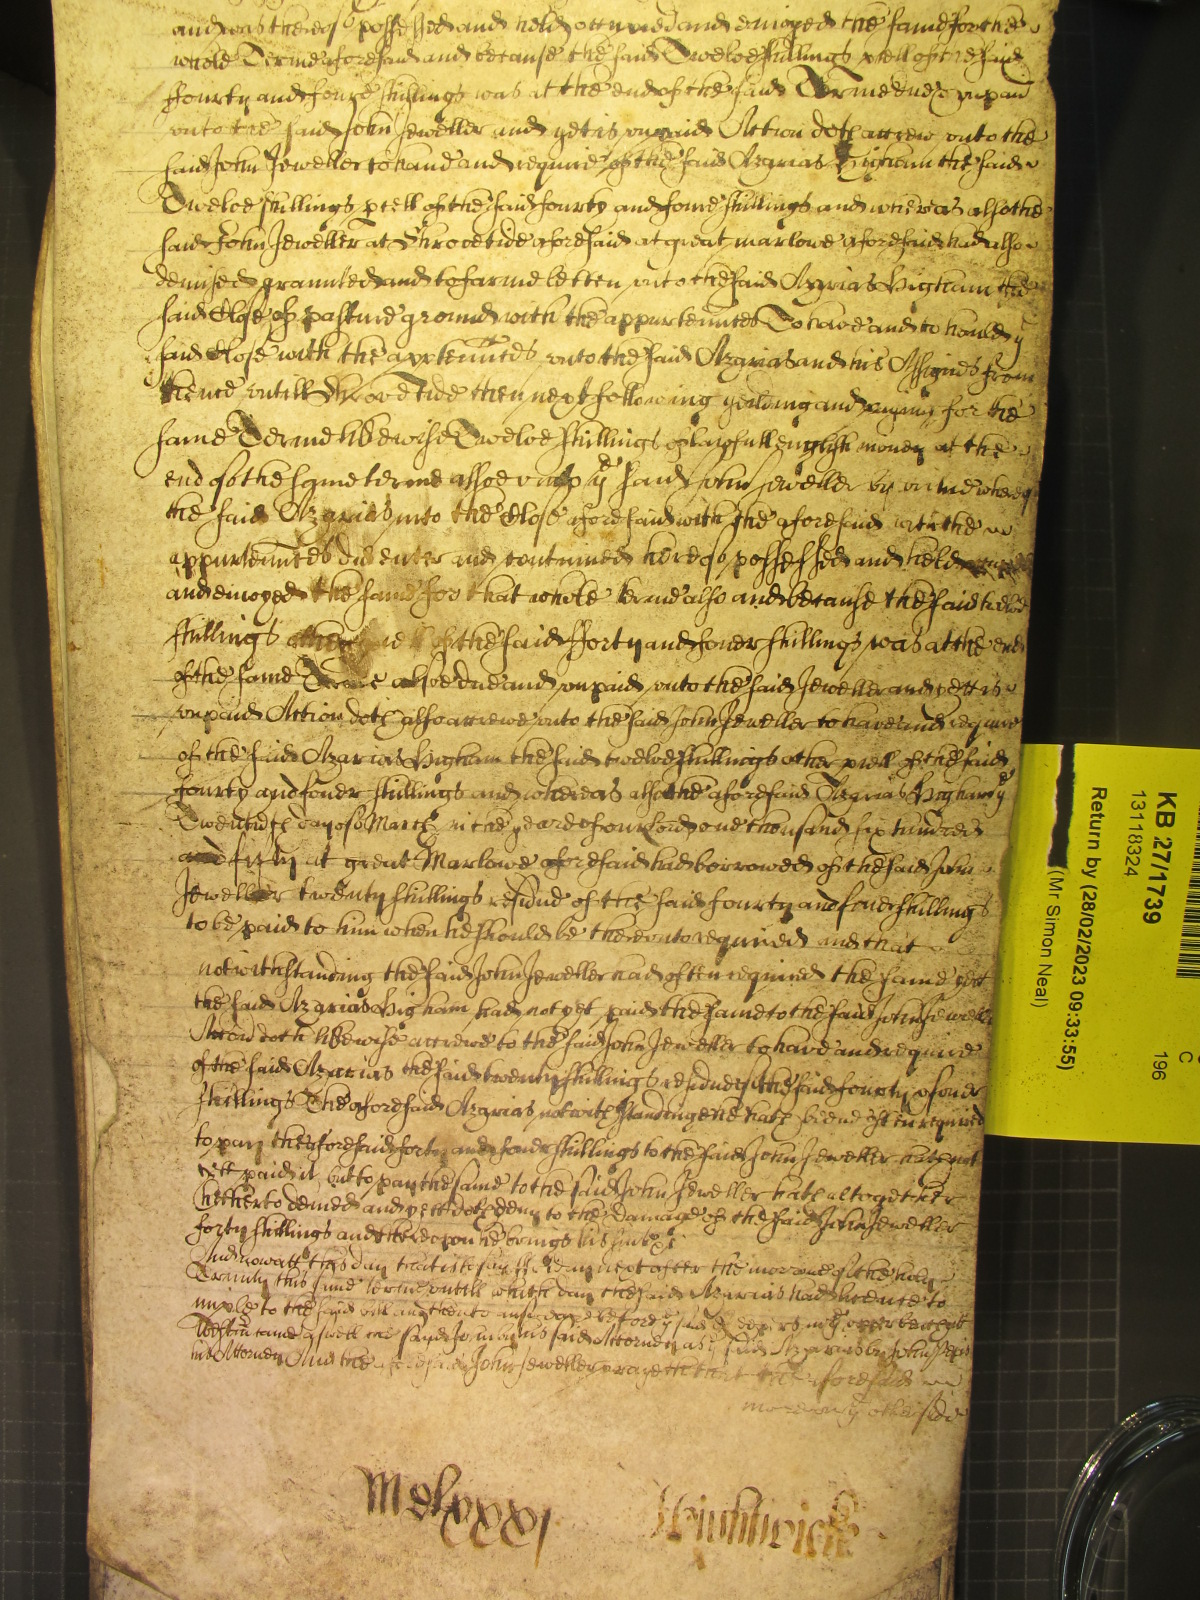 and was thereof possessed and held occupied and enioyed the same for the
whole Terme aforesaid and because the said Twelve shillings pcell of the said
fourty and foure shillings was at the end of the said Terme due & unpaid
unto the said John Jeweller and yet is unpaid Action doth accrew unto the
said John Jeweller to have and require of the said Azarias Higham the said
Twelve shillings pcell of the said fourty and foure shillings and whereas alsothe
said John Jeweller at Shrovetide aforesaid at great marlowe aforesaid had also
demised graunted and to farme letten unto the said Azarias Higham the
said Close of pasture ground with the appurtenntes To have and to hould y
said Close with the apptenntes unto the said Azarias and his Assignes from
thence untill Shrove Tide then next following yeilding and paying for the
same Terme likewise Twelve shillings of lawfull english money at the
end of the same terme alsoe unto ye said John Jeweller by vertue whereof
the said Azarias into the Close aforesaid with the aforesaid with the
appurtenntes did enter and continued thereof possessed and held
and enioyed the same for that whole terme also and because the said twelve
shillings other pcell of the said fforty and fower shillings was at the end
of the same Terme alsoe due and unpaid unto the said Jeweller and yett is
unpaid Action doth also accrewe unto the said John Jeweller to have and require
of the said Azarias Higham the said twelve shillings other pcell of the said
fourty and fower shillings and whereas also the aforesaid Azarias Higham ye
Twentieth day of March in the yeare of our Lord one thousand six hundred
and fifty at great Marlowe aforesaid had borrowed of the said John
Jeweller twenty shillings residue of the said fourty and fower shillings
to be paid to him when he should be thereunto required and that
notwithstanding the said John Jeweller had often required the same yett
the said Azarias Higham had not yet paid the same to the said John Jeweller
Accon doth likewise accrewe to the said John Jeweller to have and require
of the said Azarias the said twenty shillings residue of the said fourty & fower
shillings The aforesaid Azarias notwithstanding he hath beene often required
to pay the aforesaid forty and fower shillings to the said John Jeweller hath not
yett paid it but to pay the same to the said John Jeweller hath altogether
hitherto denied and yett doth deny to the damage of the said John Jeweller
forty shillings and thereupon he brings his suit &c
And now att this day that is to say the day next after the morrowe of the holy
Trinity this same terme untill which day the said Azarias had licence to
imple to the said bill and then to answere before y said
Westm came aswell the said John by his said Attorney as y said Azarias by John
his Attorney And the aforesaid John Jeweller prayeth that the aforesaid
more on y other side
KB 27/1739
13118324
Return by (28/02/2023 09:33:55)
(Mr Simon Neal)
C
196